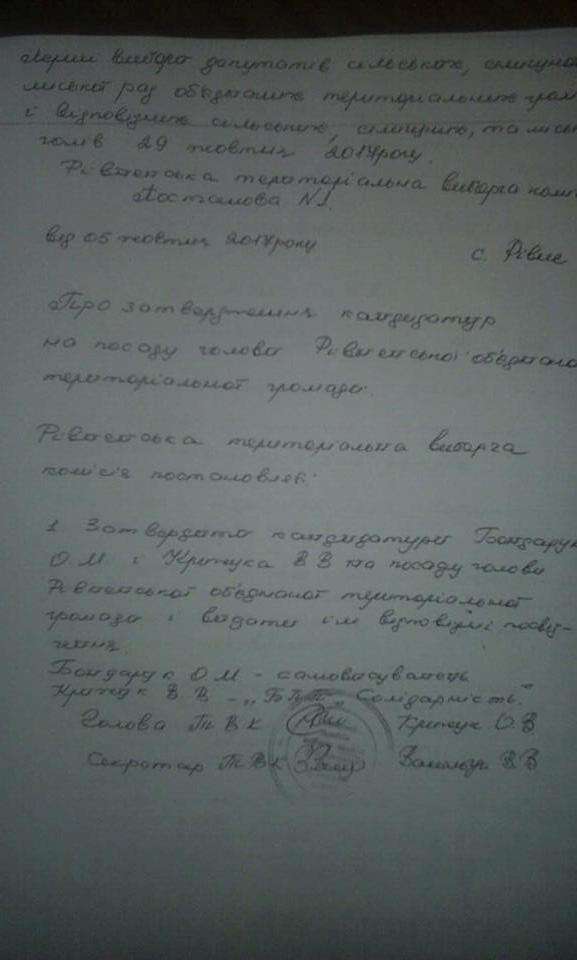 Перші вибори депутатів сільських, селищних
міської рад об'єднаних територіальних гром
і відповідних сільських, селищних, та місь
голів 29 жовтня 2017року.
Рівненська територіальна виборча комі
Постанова N1.
від 05 жовтня 2017року с. Рівне
Про затвердження кандидатур
на посаду голови Рівненської об'єднано
територіальної громади.
Рівненська територіальна виборча
комісія постановляє:
1 Затвердити кандидатури Бондарук
О.М і Крижука В В на посаду голови
Рівненської об'єднаної територіальної
громади і видати їм відповідні посвід-
чення.
Бондарук О.М - самовисуванець
В В - „БПП „Солідарність"
Голова ТВК О.В
Секретар ТВК В.В